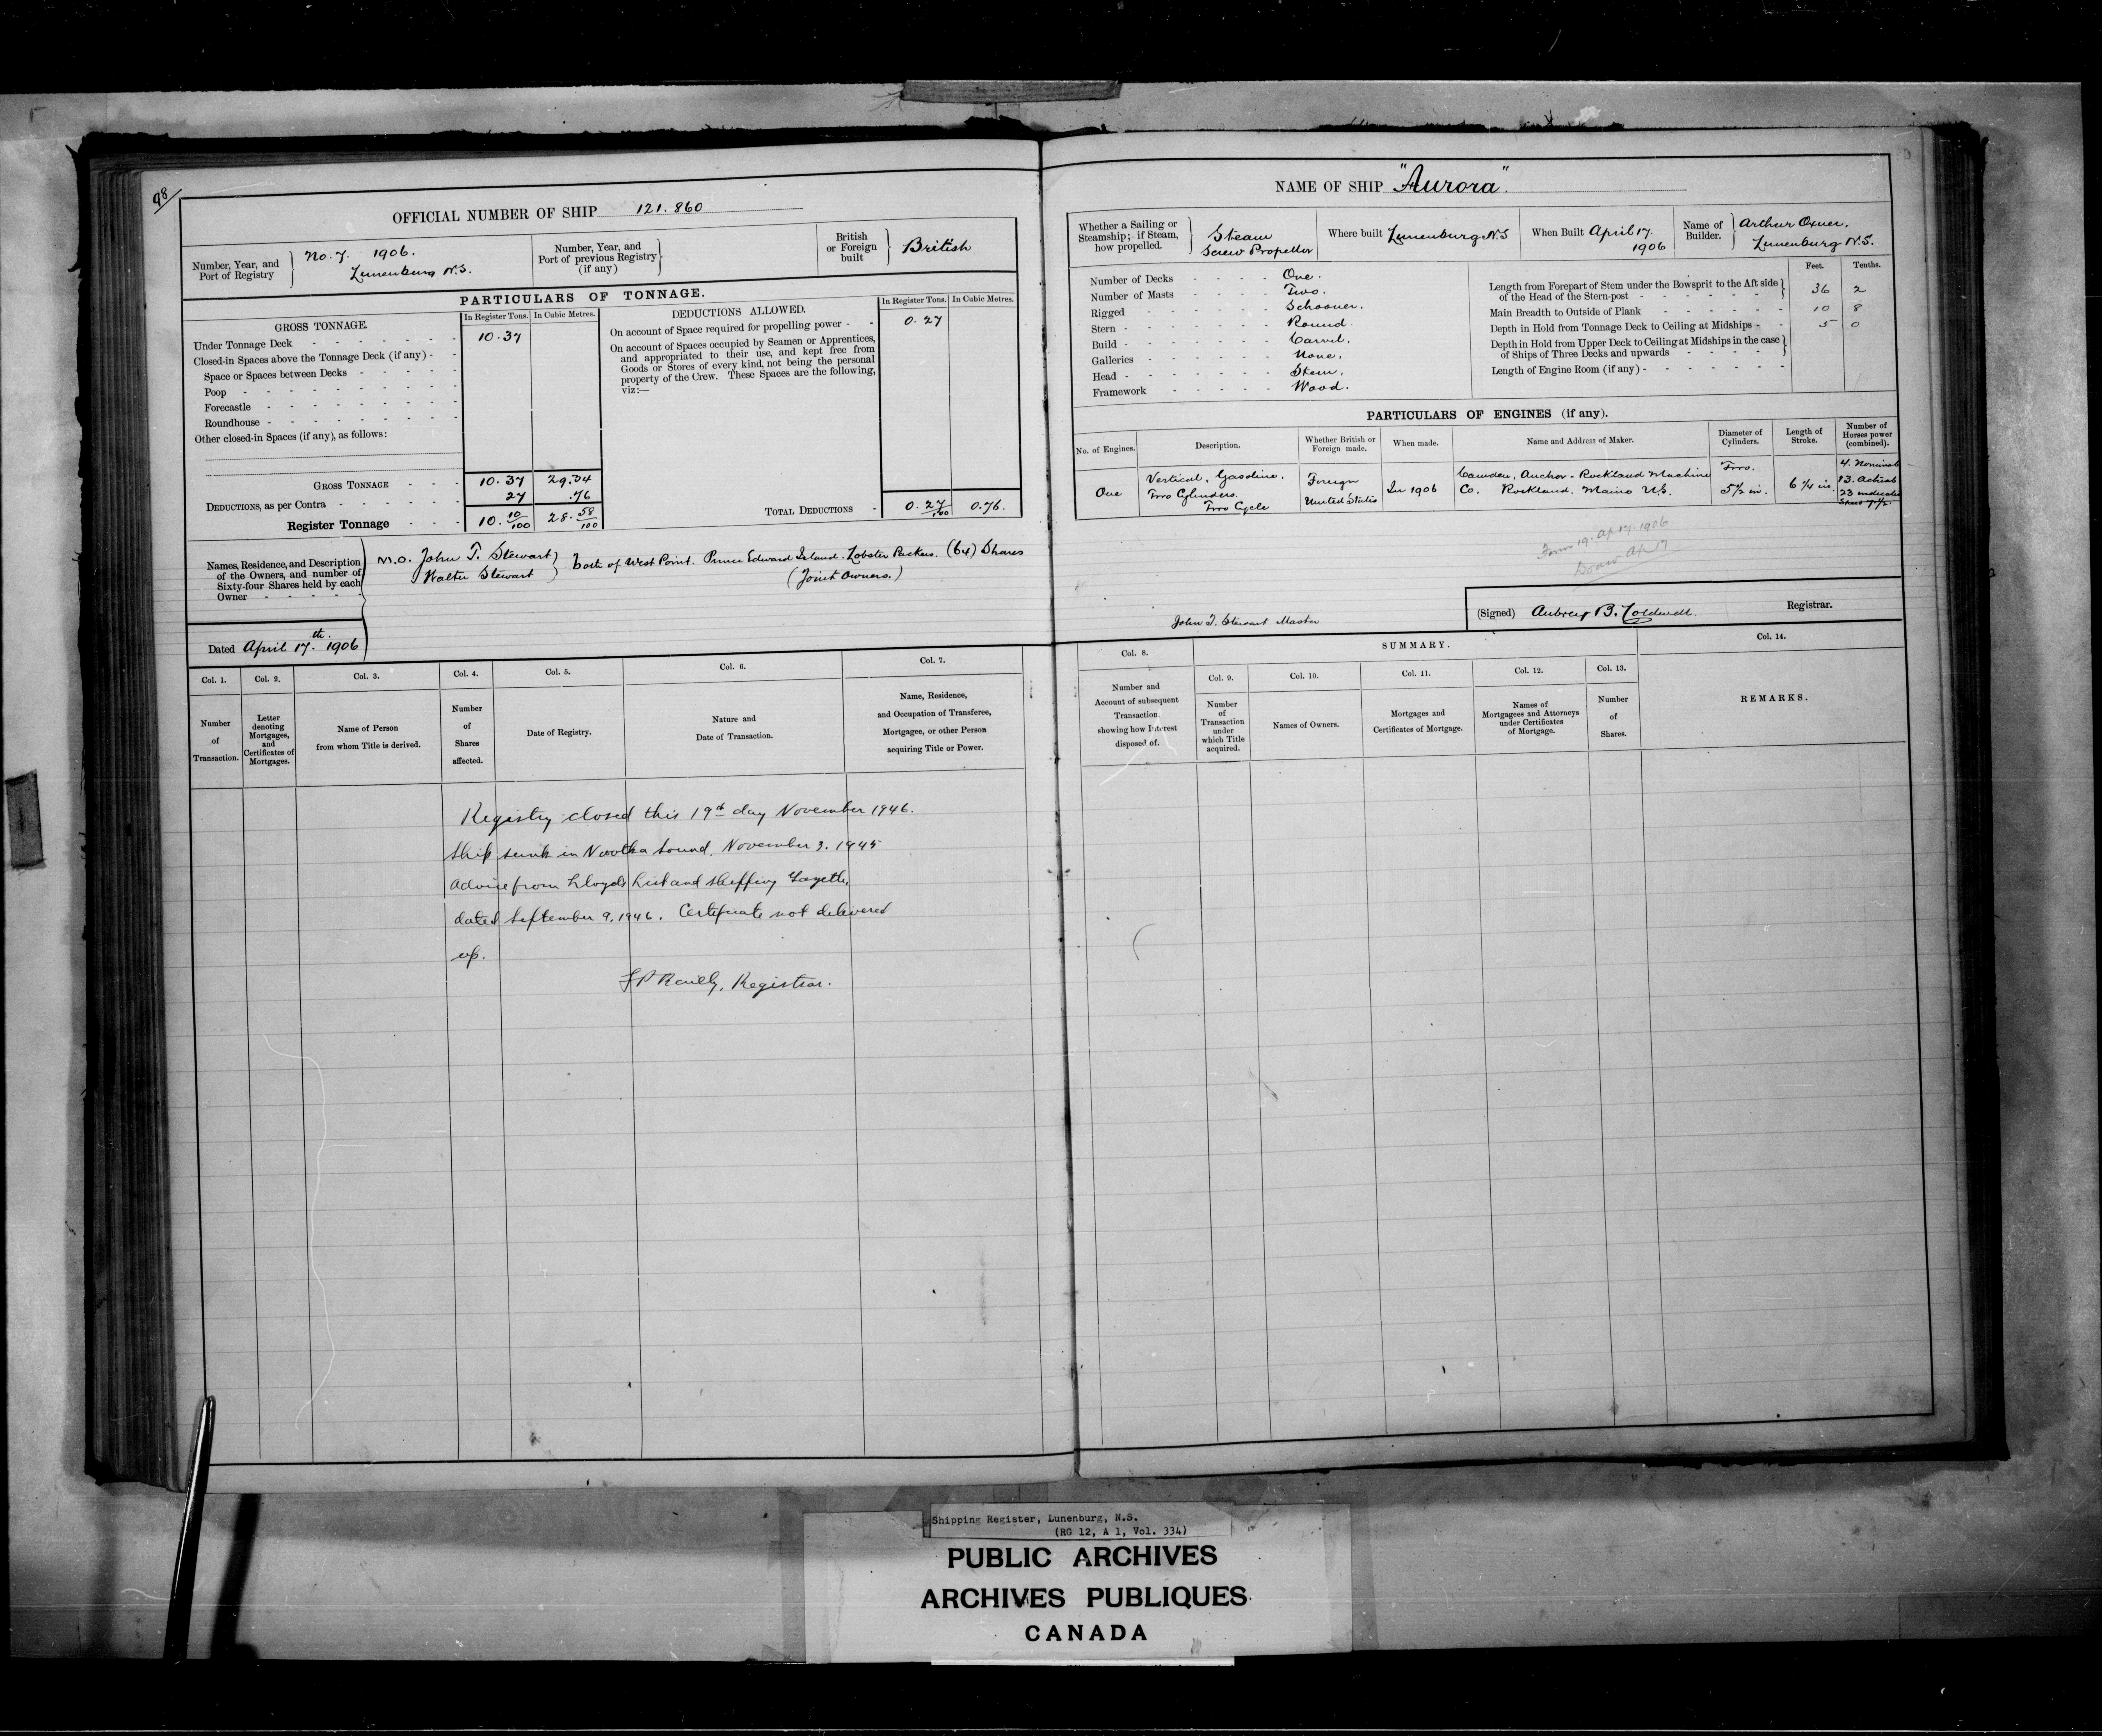 98/
OFFICIAL NUMBER OF SHIP 121.860
Number, Year, and Port of Registry } No. 7. 1906. Lunenburg N.S.
Number, Year, and Port of previous Registry (if any) }
British or Foreign built } British
PARTICULARS OF TONNAGE.
GROSS TONNAGE.
In Register Tons. In Cubic Metres.
Under Tonnage Deck 10.37
Closed-in Spaces above the Tonnage Deck (if any) -
Space or Spaces between Decks
Poop
Forecastle
Roundhouse
Other closed-in Spaces (if any), as follows:
GROSS TONNAGE 10.37 29.34
DEDUCTIONS, as per Contra 27 .76
Register Tonnage 10. 10/100 28. 58/100
DEDUCTIONS ALLOWED.
In Register Tons. In Cubic Metres.
On account of Space required for propelling power - 0.27
On account of Spaces occupied by Seamen or Apprentices,
and appropriated to their use, and kept free from
Goods or Stores of every kind, not being the personal
property of the Crew. These Spaces are the following,
viz:—
TOTAL DEDUCTIONS - 0. 27/100 0.76.
Names, Residence, and Description
of the Owners, and number of
Sixty-four Shares held by each
Owner
M.O. John T. Stewart ) Both of West Point. Prince Edward Island. Lobster Packers. (64) Shares
Walter Stewart ) (Joint Owners.)
Dated April 17th. 1906
NAME OF SHIP "Aurora".
Whether a Sailing or Steamship; if Steam, how propelled. } Steam Screw Propeller
Where built Lunenburg N.S
When Built April 17. 1906
Name of Builder. } Arthur Oxner, Lunenburg N.S.
Number of Decks One.
Number of Masts Two.
Rigged Schooner.
Stern Round
Build Carvel.
Galleries None,
Head Stem,
Framework Wood.
Feet. Tenths.
Length from Forepart of Stem under the Bowsprit to the Aft side
of the Head of the Stern-post 36 2
Main Breadth to Outside of Plank 10 8
Depth in Hold from Tonnage Deck to Ceiling at Midships 5 0
Depth in Hold from Upper Deck to Ceiling at Midships in the case
of Ships of Three Decks and upwards
Length of Engine Room (if any)
PARTICULARS OF ENGINES (if any).
No. of Engines. Description. Whether British or Foreign made. When made. Name and Address of Maker. Diameter of Cylinders. Length of Stroke. Number of Horses power (combined).
One
Vertical, Gasoline.
Two Cylinders.
Two Cycle
Foreign
United States
In 1906
Camden, Anchor-Rockland Machine
Co. Rockland, Maine U.S.
Two.
5 1/2 in.
6 1/4 in.
4. Nominal
13. Actual
23 indicated
Speed 7 1/2.
Form 19. Ap 17. 1906
Ap 17
John T. Stewart Master
(Signed) Aubrey B. Coldwell. Registrar.
Col. 1. Col. 2. Col. 3. Col. 4. Col. 5. Col. 6. Col. 7.
Number of Transaction.
Letter denoting Mortgages, and Certificates of Mortgages.
Name of Person from whom Title is derived.
Number of Shares affected.
Date of Registry.
Nature and Date of Transaction.
Name, Residence, and Occupation of Transferee, Mortgagee, or other Person acquiring Title or Power.
Col. 8.
Number and Account of subsequent Transaction, showing how Interest disposed of.
SUMMARY.
Col. 9. Col. 10. Col. 11. Col. 12. Col. 13.
Number of Transaction under which Title acquired.
Names of Owners.
Mortgages and Certificates of Mortgage.
Names of Mortgagees and Attorneys under Certificates of Mortgage.
Number of Shares.
Col. 14.
REMARKS.
Registry closed this 19th day November 1946.
Ship sunk in Nootka Sound. November 3. 1945
Advice from Lloyds List and Shipping Gazette,
dated September 9, 1946. Certificate not delivered
up.
Registrar.
Shipping Register, Lunenburg, N.S.
(RG 12, A 1, Vol. 334)
PUBLIC ARCHIVES
ARCHIVES PUBLIQUES
CANADA